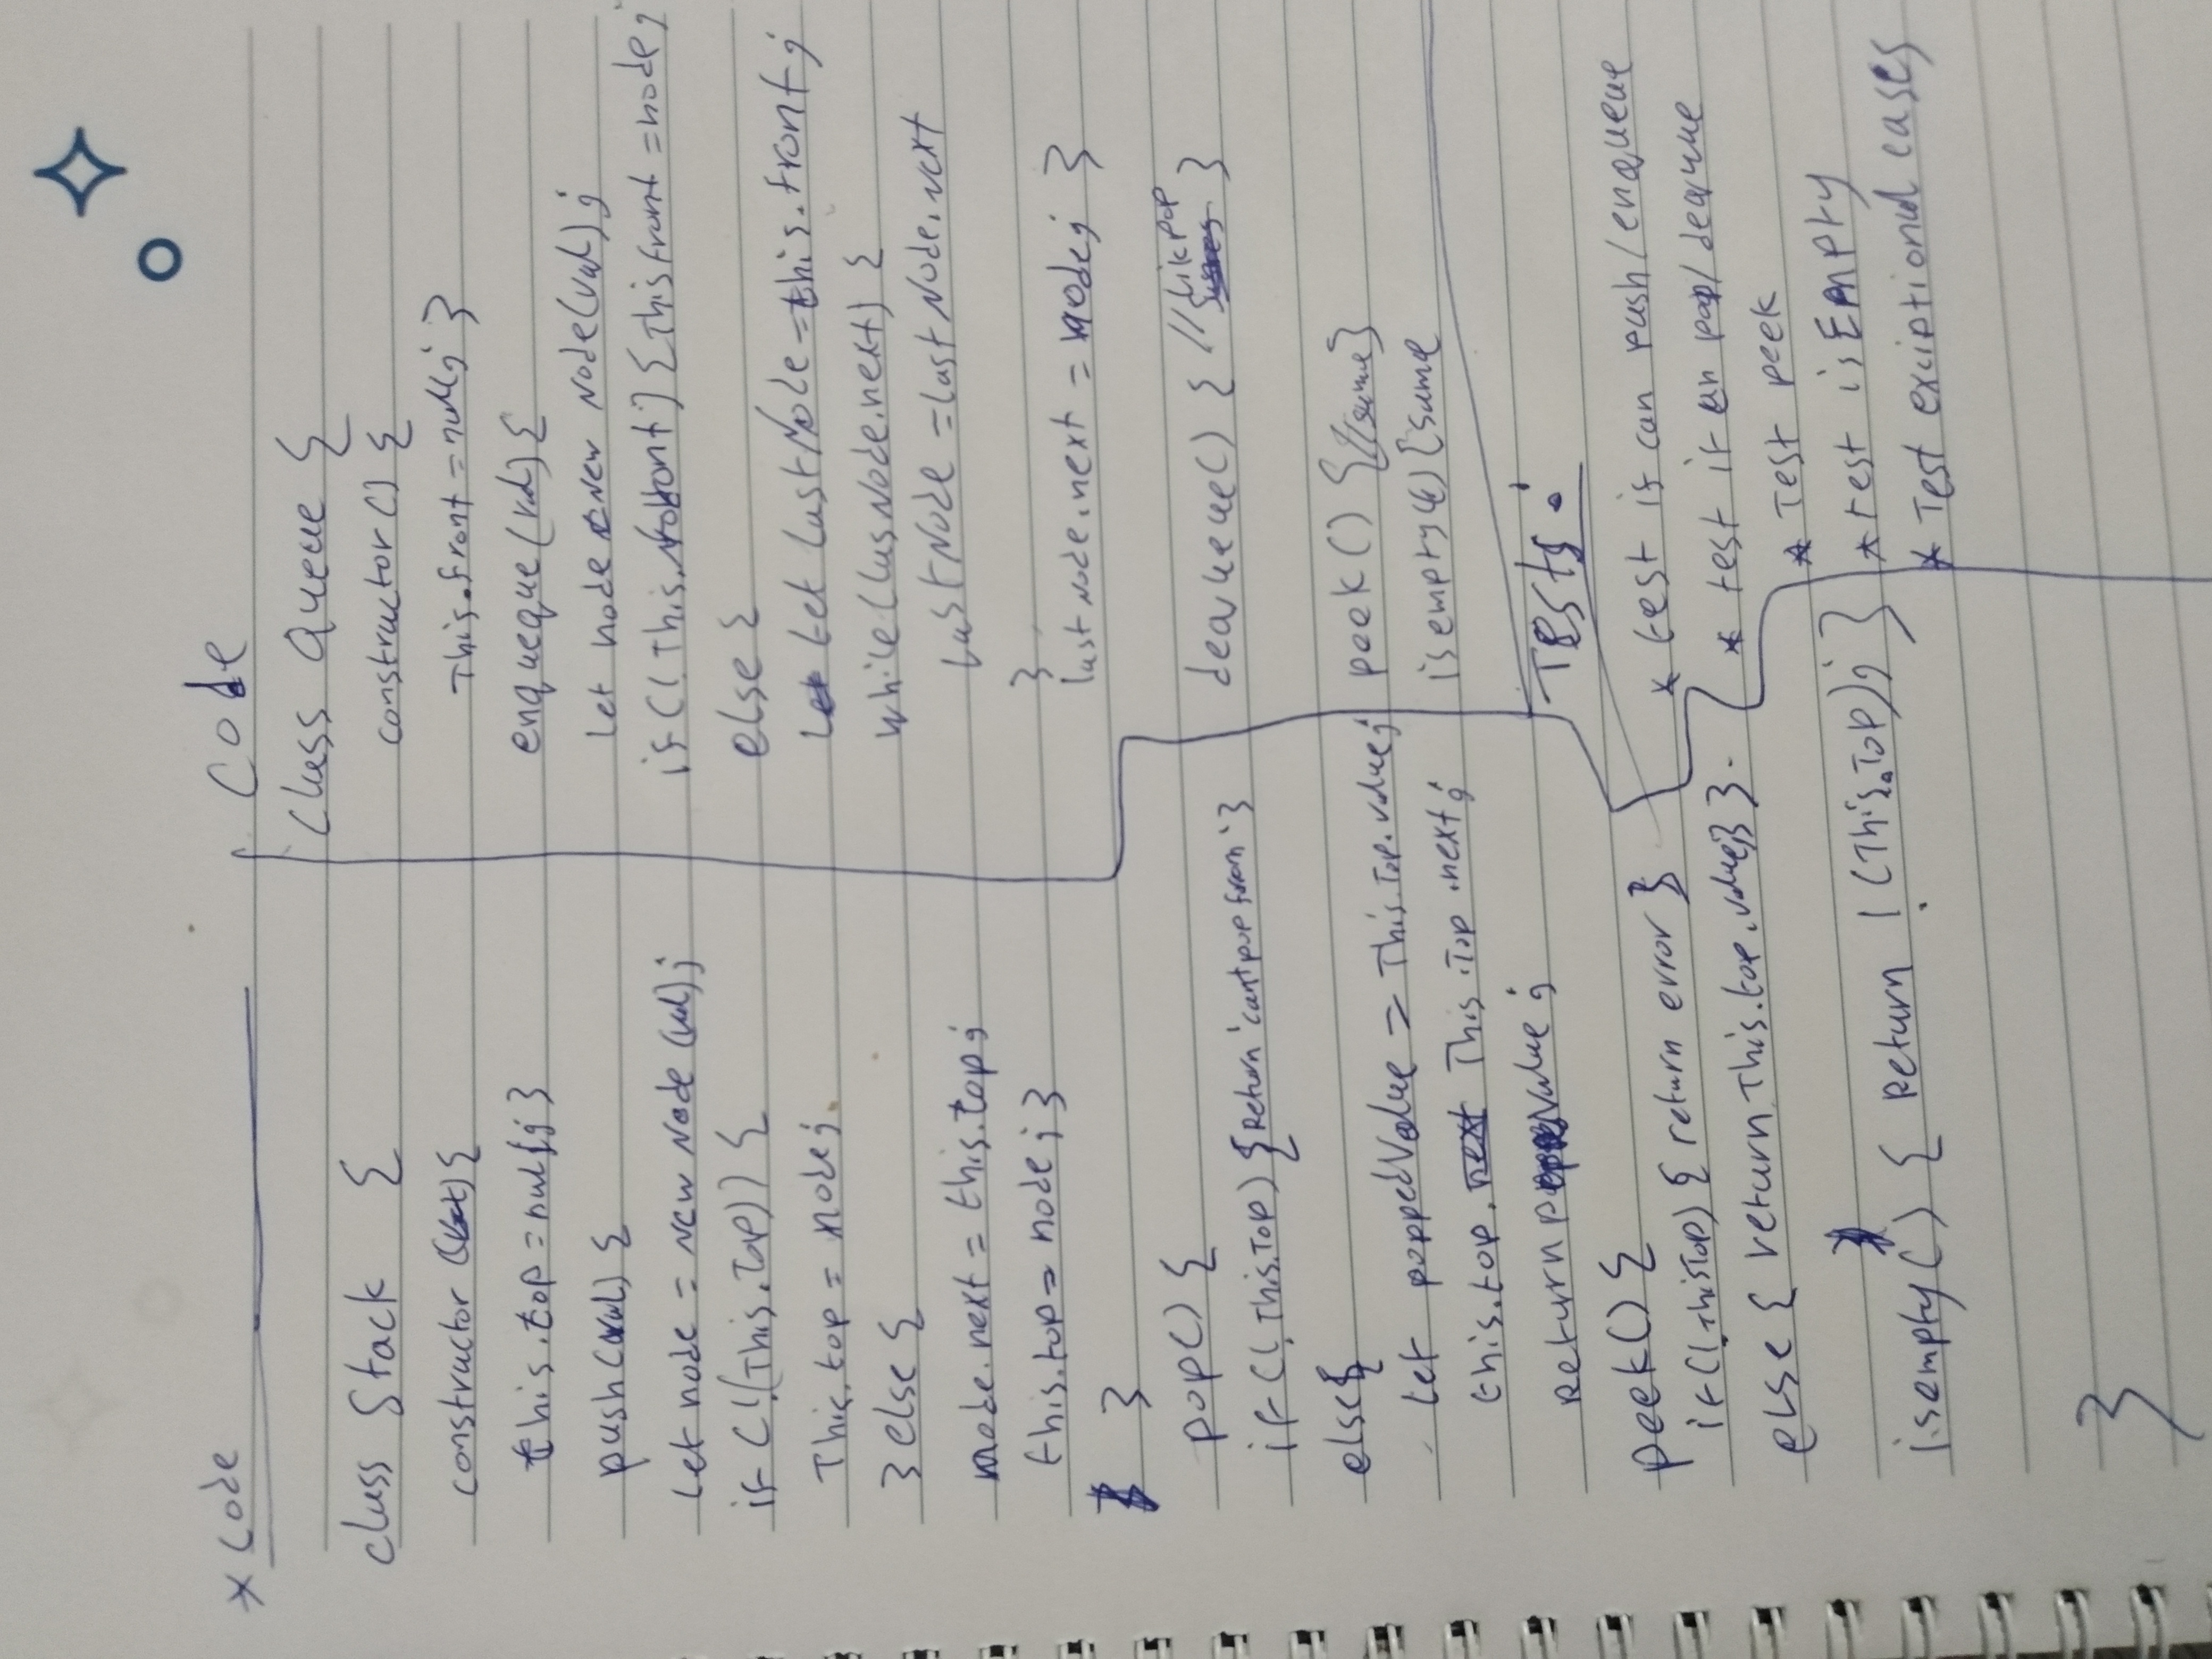 * Code
class Stack {
constructor () {
this.top = null; }
push (val) {
Let node = new Node (val);
if (!(This.Top)) {
This.top = node;
} else {
node.next = this.top;
this.top = node; }
}
pop() {
if (!.This.Top) { Return 'cant pop from' }
else {
Let poppedValue = This.Top.value;
this.top. This.Top.next;
return Value;
peek() {
if (!.This Top) { return error }
else { return This.top.value; } }.
isempty() { Return ! (This.Top); }
}
Code
Class Queue {
constructor () {
This.front = null; }
enqueque (val) {
Let node = new Node (val);
if (! This.front) { This front = node;
else {
Let Last Node = this.front;
while (Lus Node.next) {
Last Node = last Node.next
}
last Node.next = node; }
deaueue () { // Lik pop }
peek () { // same }
is empty () { same
Tests:
* test if can push/enqueue
* test if an pop/deaque
* Test peek
* test is Empty
* Test exciptional cases